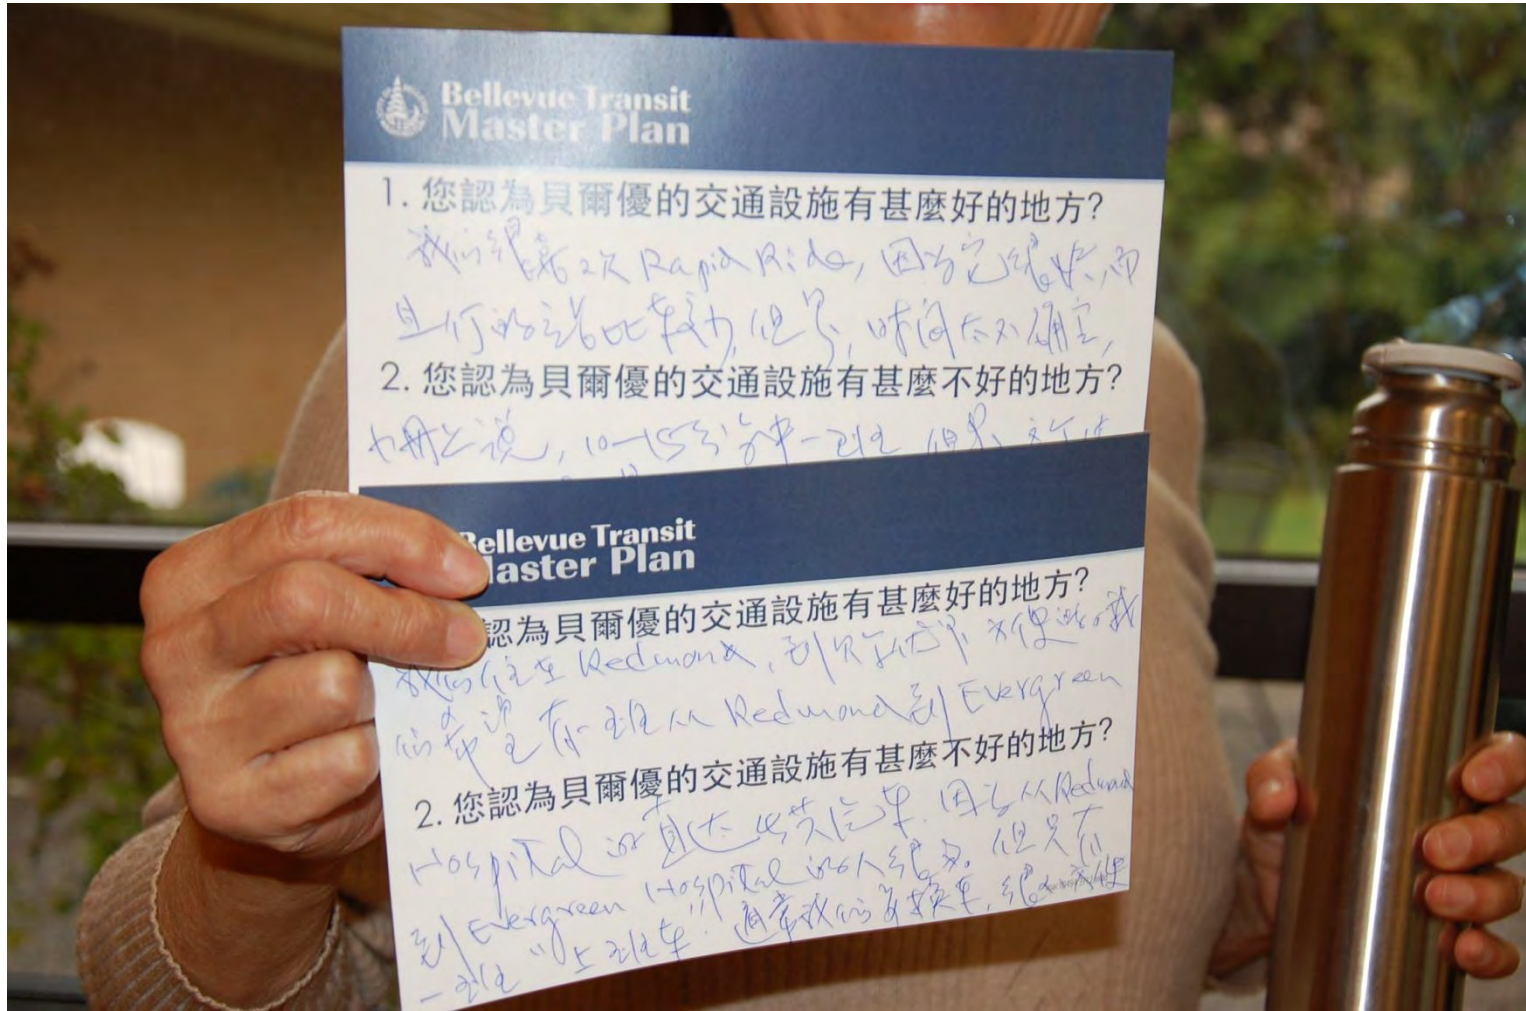 Bellevue Transit
Master Plan
1. 您認為貝爾優的交通設施有甚麼好的地方?
我们很喜欢 Rapid Ride, 因为它很快, 而
且停的站比较少, 但是, 时间太不确定,
2. 您認為貝爾優的交通設施有甚麼不好的地方?
册上说, 10-15分钟一班 但是
Bellevue Transit
Master Plan
認為貝爾優的交通設施有甚麼好的地方?
我们住在 Redmond, 到 不方便 我
们希望有一班从 Redmond 到 Evergreen
2. 您認為貝爾優的交通設施有甚麼不好的地方?
Hospital 的直达公共汽车. 因为从 Redmond
到 Evergreen Hospital 的人很多。但只有
一班 "上班车". 通常我们要换车, 很不方便